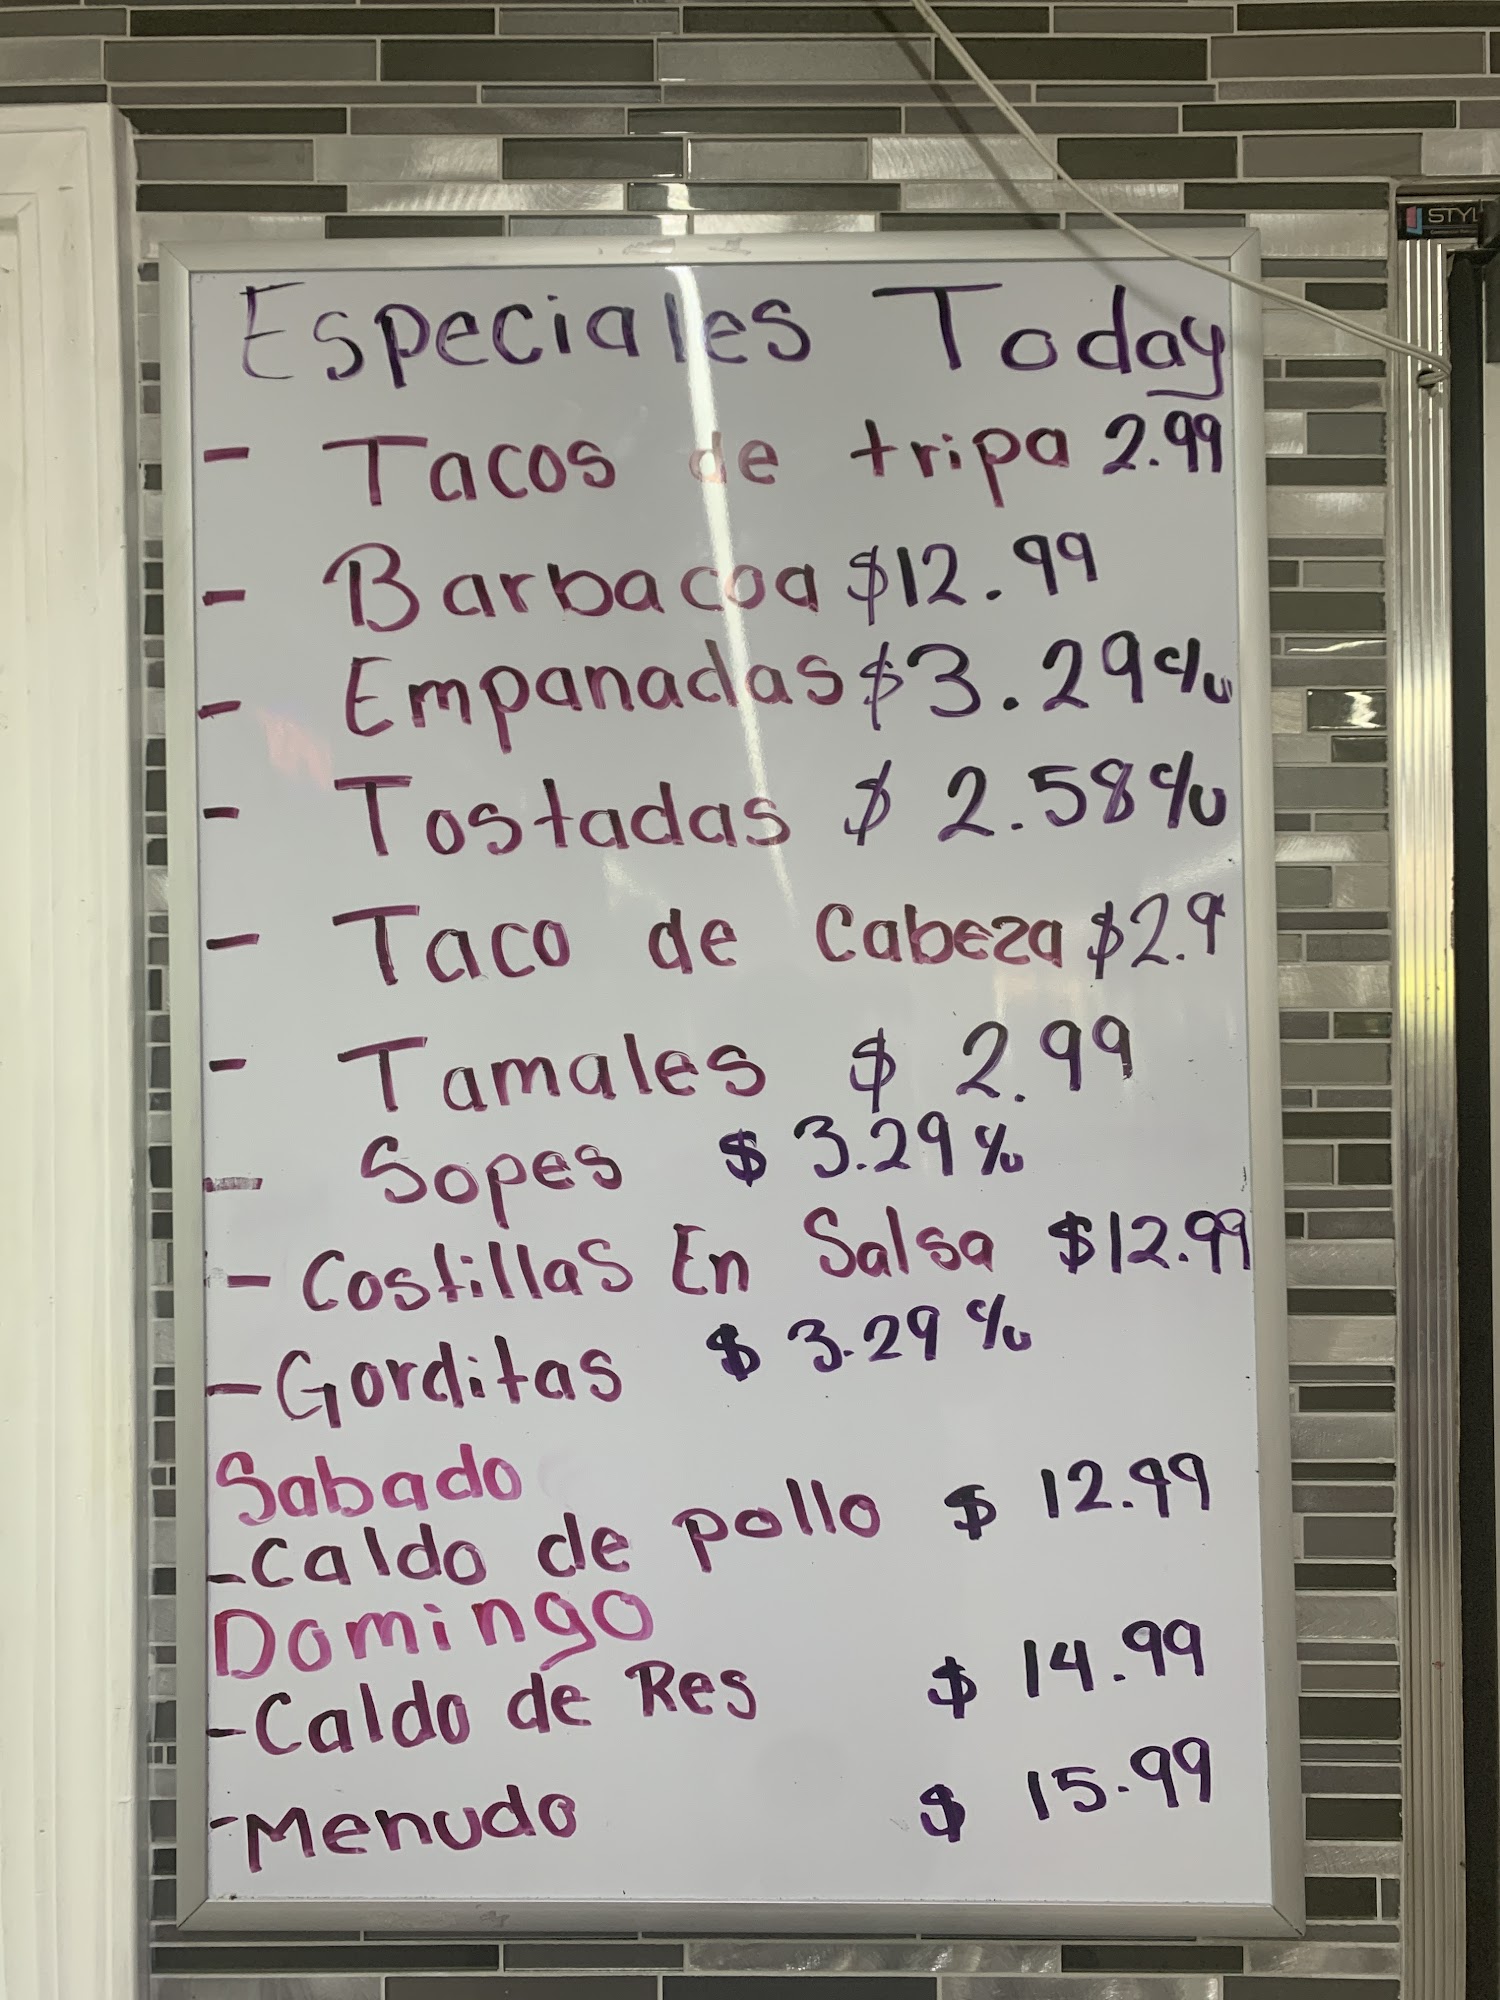 STYL
Especiales Today
- Tacos de tripa 2.99
- Barbacoa $12.99
- Empanadas $3.29 c/u
- Tostadas $ 2.58 c/u
- Taco de Cabeza $2.9
- Tamales $ 2.99
- Sopes $ 3.29 c/u
- Costillas En Salsa $12.99
- Gorditas $ 3.29 c/u
Sabado
- Caldo de pollo $ 12.99
Domingo
- Caldo de Res $ 14.99
- Menudo $ 15.99